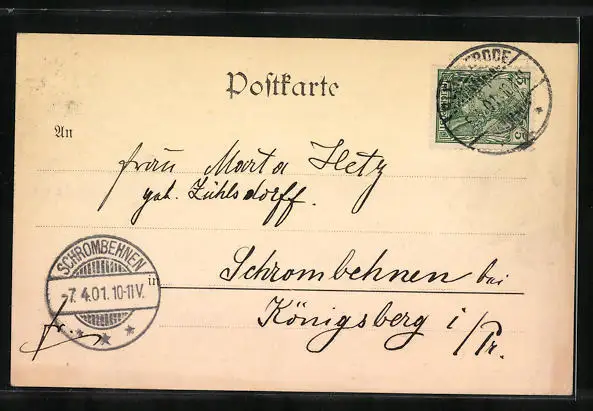 Postkarte
An
Frau Marta Hetz
geb. Zühlsdorff.
SCHROMBEHNEN
-7.4.01.10-11V.
in
Schrombehnen bei
Königsberg i/Pr.
fr.
5
5